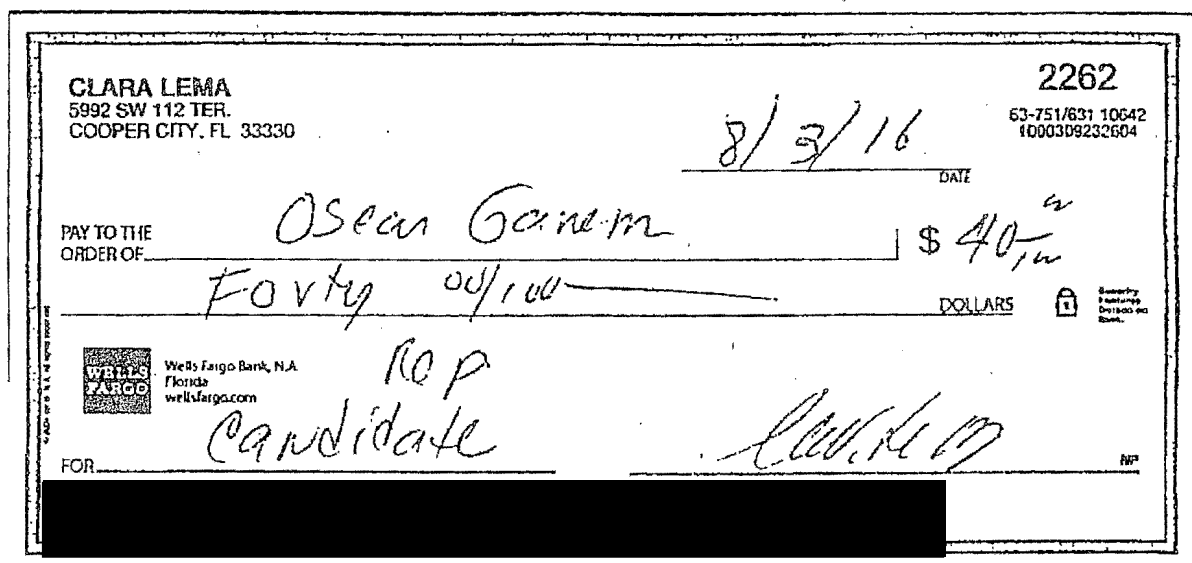 CLARA LEMA
5992 SW 112 TER.
COOPER CITY, FL 33330
2262
63-751/631 10642
1000309232604
8/3/16
DATE
PAY TO THE
ORDER OF
Oscar Ganem
$ 40
Forty 00/100
DOLLARS
Security
Features
Details on
Back.
WELLS
FARGO
Wells Fargo Bank, N.A.
Florida
wellsfargo.com
Rep
Candidate
FOR
MP